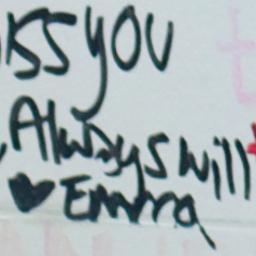 iss you
Always will
♥ Emma